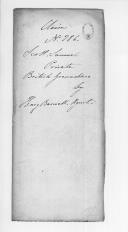 Claim
No. 286.
Scott, Samuel
Private
British Grenadiers
by
Barnett,